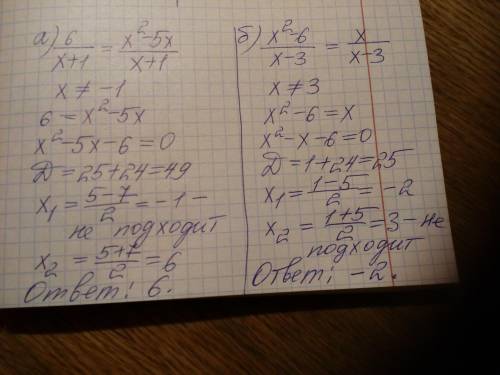 а) 6/(x+1) = (x²-5x)/(x+1)
x ≠ -1
6 = x²-5x
x²-5x-6=0
D=25+24=49
x₁ = (5-7)/2 = -1 -
не подходит
x₂ = (5+7)/2 = 6
Ответ: 6.
б) (x²-6)/(x-3) = x/(x-3)
x ≠ 3
x²-6=x
x²-x-6=0
D=1+24=25
x₁ = (1-5)/2 = -2
x₂ = (1+5)/2 = 3 - не
подходит
Ответ: -2.